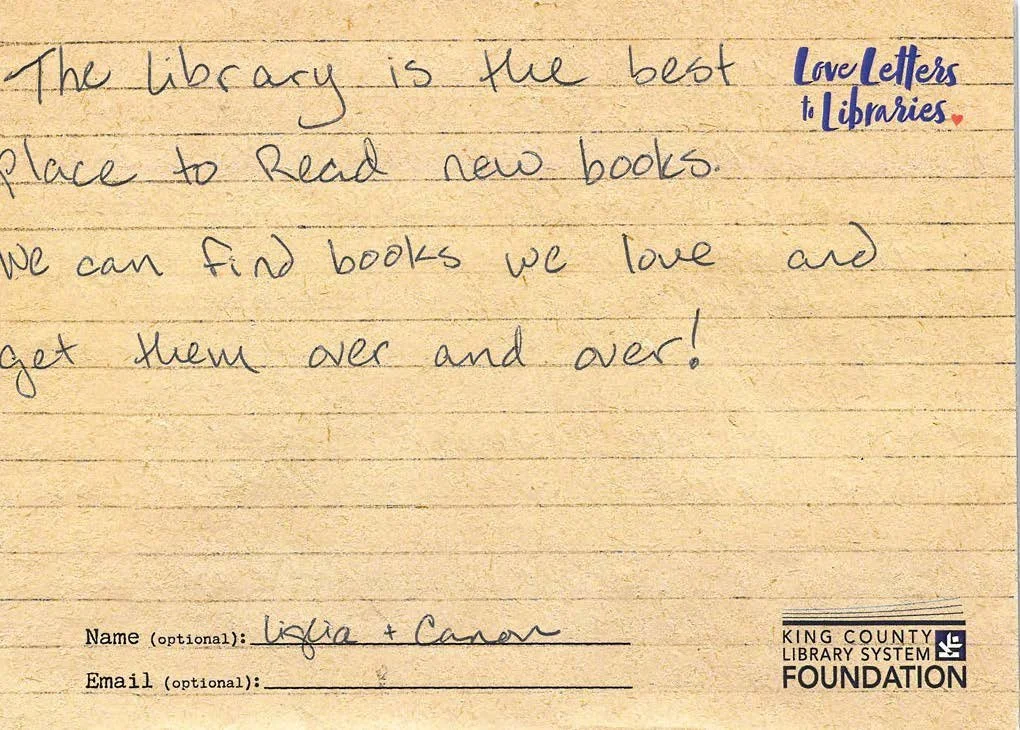 The library is the best
Love Letters
to Libraries
place to Read new books.
We can find books we love and
get them over and over!
Name (optional): +
Email (optional):
KING COUNTY
LIBRARY SYSTEM
FOUNDATION